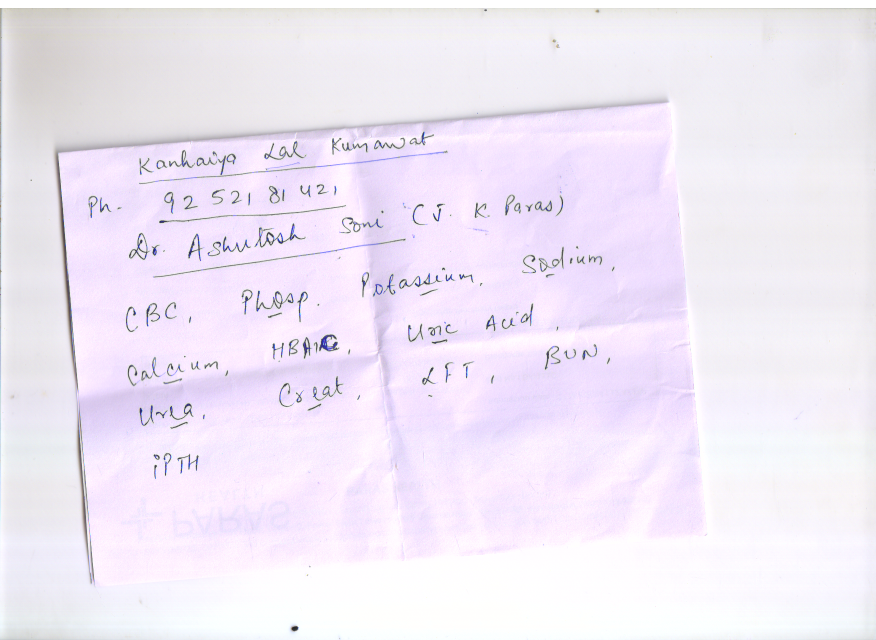 Kanhaiya Lal Kumawat
Ph. 92 521 81 421
Dr. Ashutosh Soni (J. K. Paras)
CBC, Phosp. Potassium, Sodium,
Calcium, HBA1C, Uric Acid,
Urea, Creat, LFT, BUN,
iPTH
PARAS